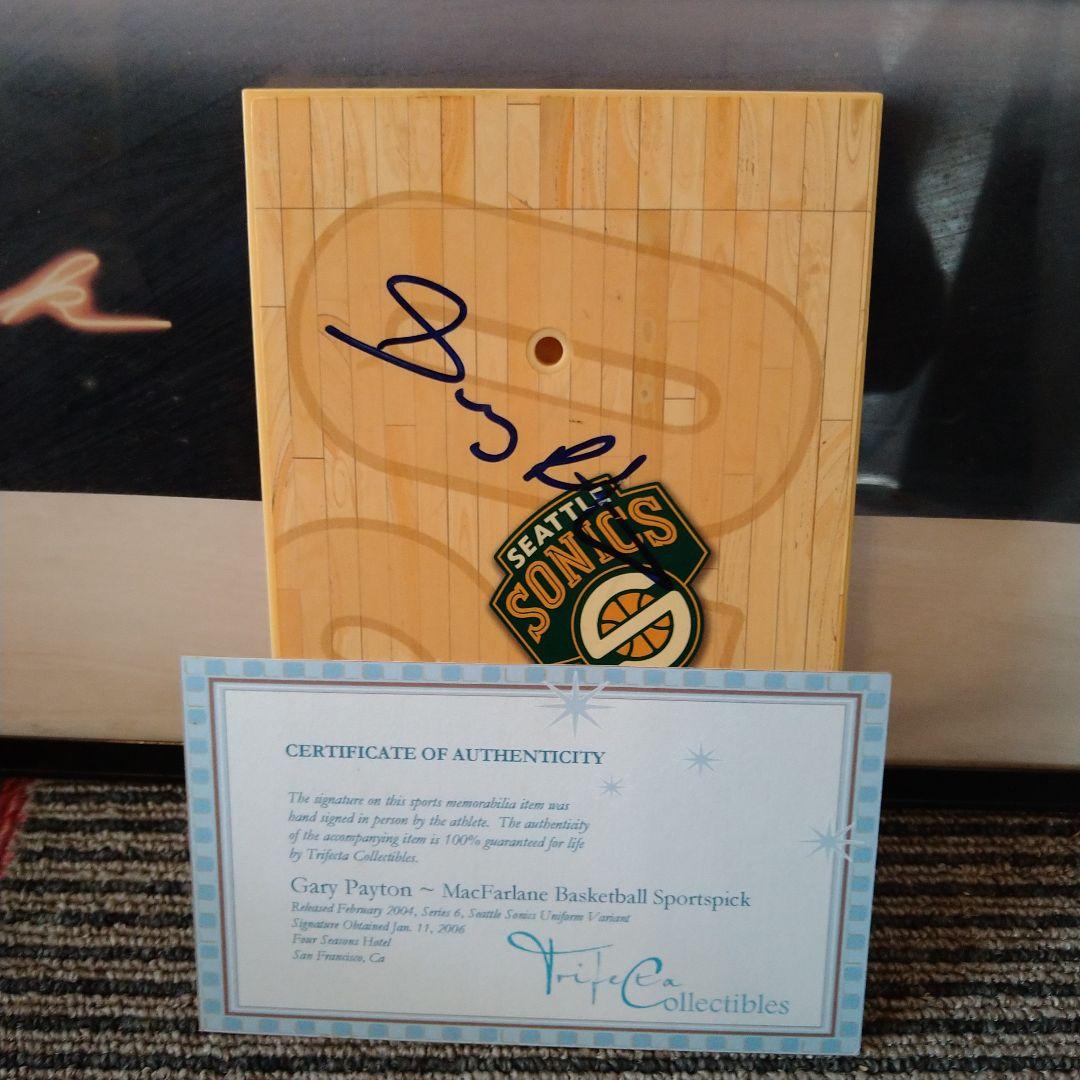 Gary Payton
SEATTLE
SONICS
CERTIFICATE OF AUTHENTICITY
The signature on this sports memorabilia item was
hand signed in person by the athlete. The authenticity
of the accompanying item is 100% guaranteed for life
by Trifecta Collectibles.
Gary Payton ~ MacFarlane Basketball Sportspick
Released February 2004, Series 6, Seattle Sonics Uniform Variant
Signature Obtained Jan. 11, 2006
Four Seasons Hotel
San Francisco, Ca
Trifecta
Collectibles